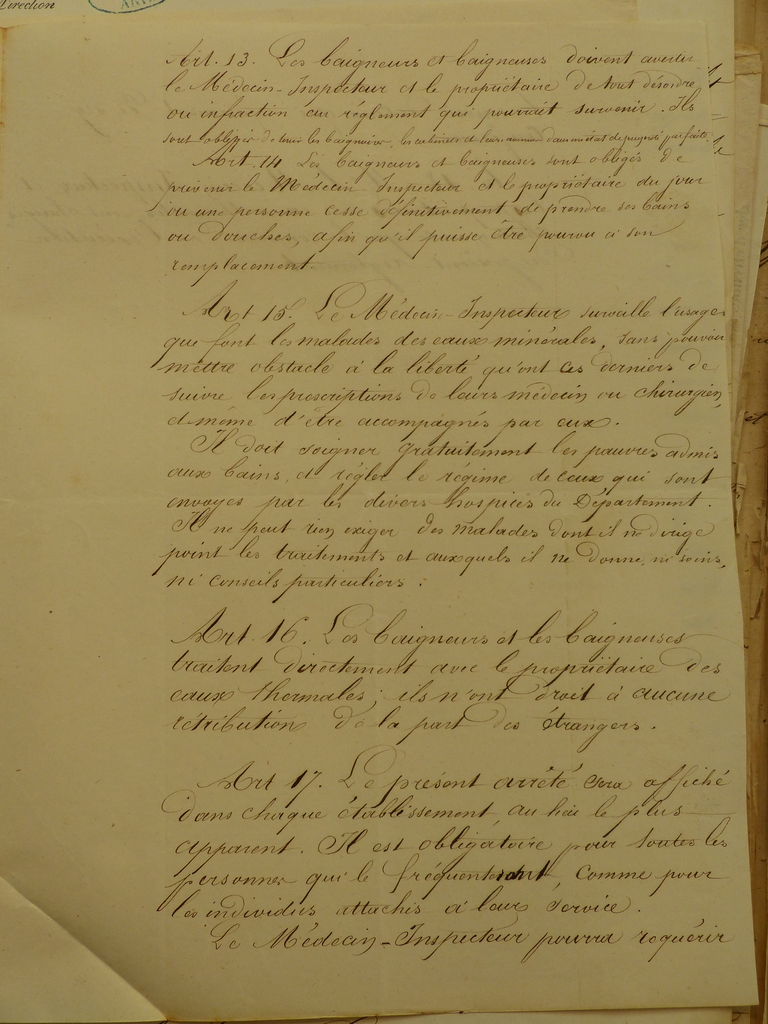 Direction
Art. 13. Les baigneurs et baigneuses doivent avertir
le Médecin-Inspecteur et le propriétaire de tout désordre
ou infraction au règlement qui pourrait survenir. Ils
sont obligés de tenir les baignoires, les cabinets et leurs dans un état de propreté parfaite.
Art. 14 Les baigneurs et baigneuses sont obligés de
prévenir le Médecin Inspecteur et le propriétaire du jour
ou une personne cesse définitivement de prendre ses bains
ou douches, afin qu'il puisse être pourvu à son
remplacement.
Art 15. Le Médecin-Inspecteur surveille l'usage
que font les malades des eaux minérales, sans pouvoir
mettre obstacle à la liberté qu'ont ces derniers de
suivre les prescriptions de leurs médecin ou chirurgien,
et même d'être accompagnés par eux.
Il doit soigner gratuitement les pauvres admis
aux bains, et régler le régime de ceux qui sont
envoyés par les divers hospices du Département.
Il ne peut rien exiger des malades dont il ne dirige
point les traitements et auxquels il ne donne, ni soins,
ni conseils particuliers.
Art. 16. Les baigneurs et les baigneuses
traitent directement avec le propriétaire des
eaux thermales; ils n'ont droit à aucune
rétribution de la part des étrangers.
Art 17. Le présent arrêté sera affiché
dans chaque établissement, au lieu le plus
apparent. Il est obligatoire pour toutes les
personnes qui le fréquentent, comme pour
les individus attachés à leur service.
Le Médecin-Inspecteur pourra requérir